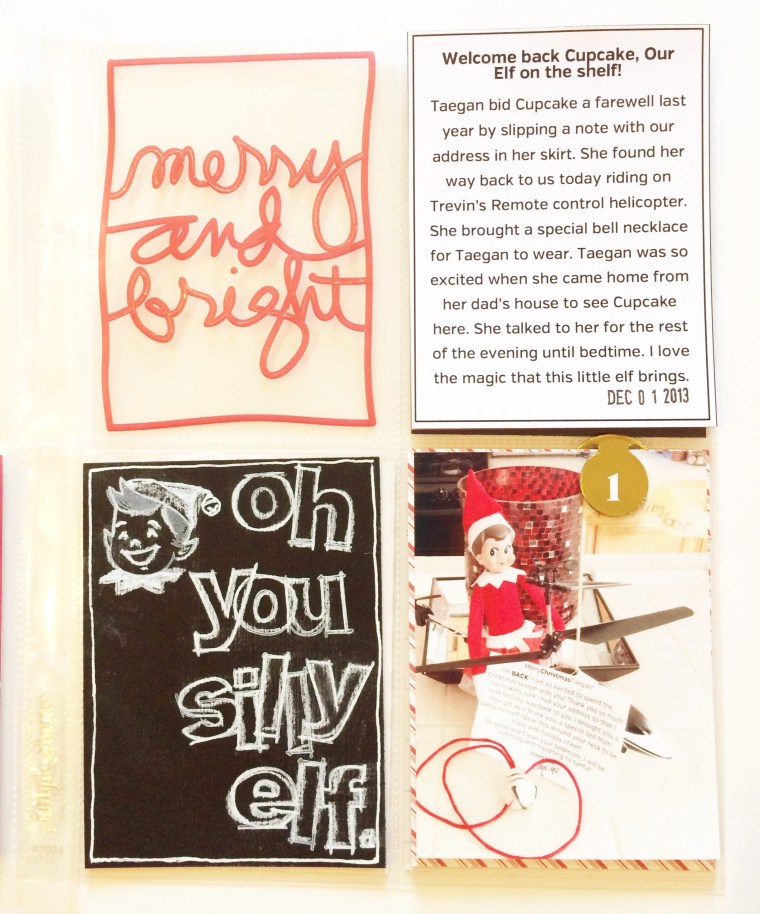 merry
and
bright
Welcome back Cupcake, Our
Elf on the shelf!
Taegan bid Cupcake a farewell last
year by slipping a note with our
address in her skirt. She found her
way back to us today riding on
Trevin's Remote control helicopter.
She brought a special bell necklace
for Taegan to wear. Taegan was so
excited when she came home from
her dad's house to see Cupcake
here. She talked to her for the rest
of the evening until bedtime. I love
the magic that this little elf brings.
DEC 0 1 2013
oh
you
silly
elf.
1
Merry Christmas Taegan!
I'm BACK! I am so excited to spend the
Christmas season with you! Thank you so much
for making sure I had your address so that I